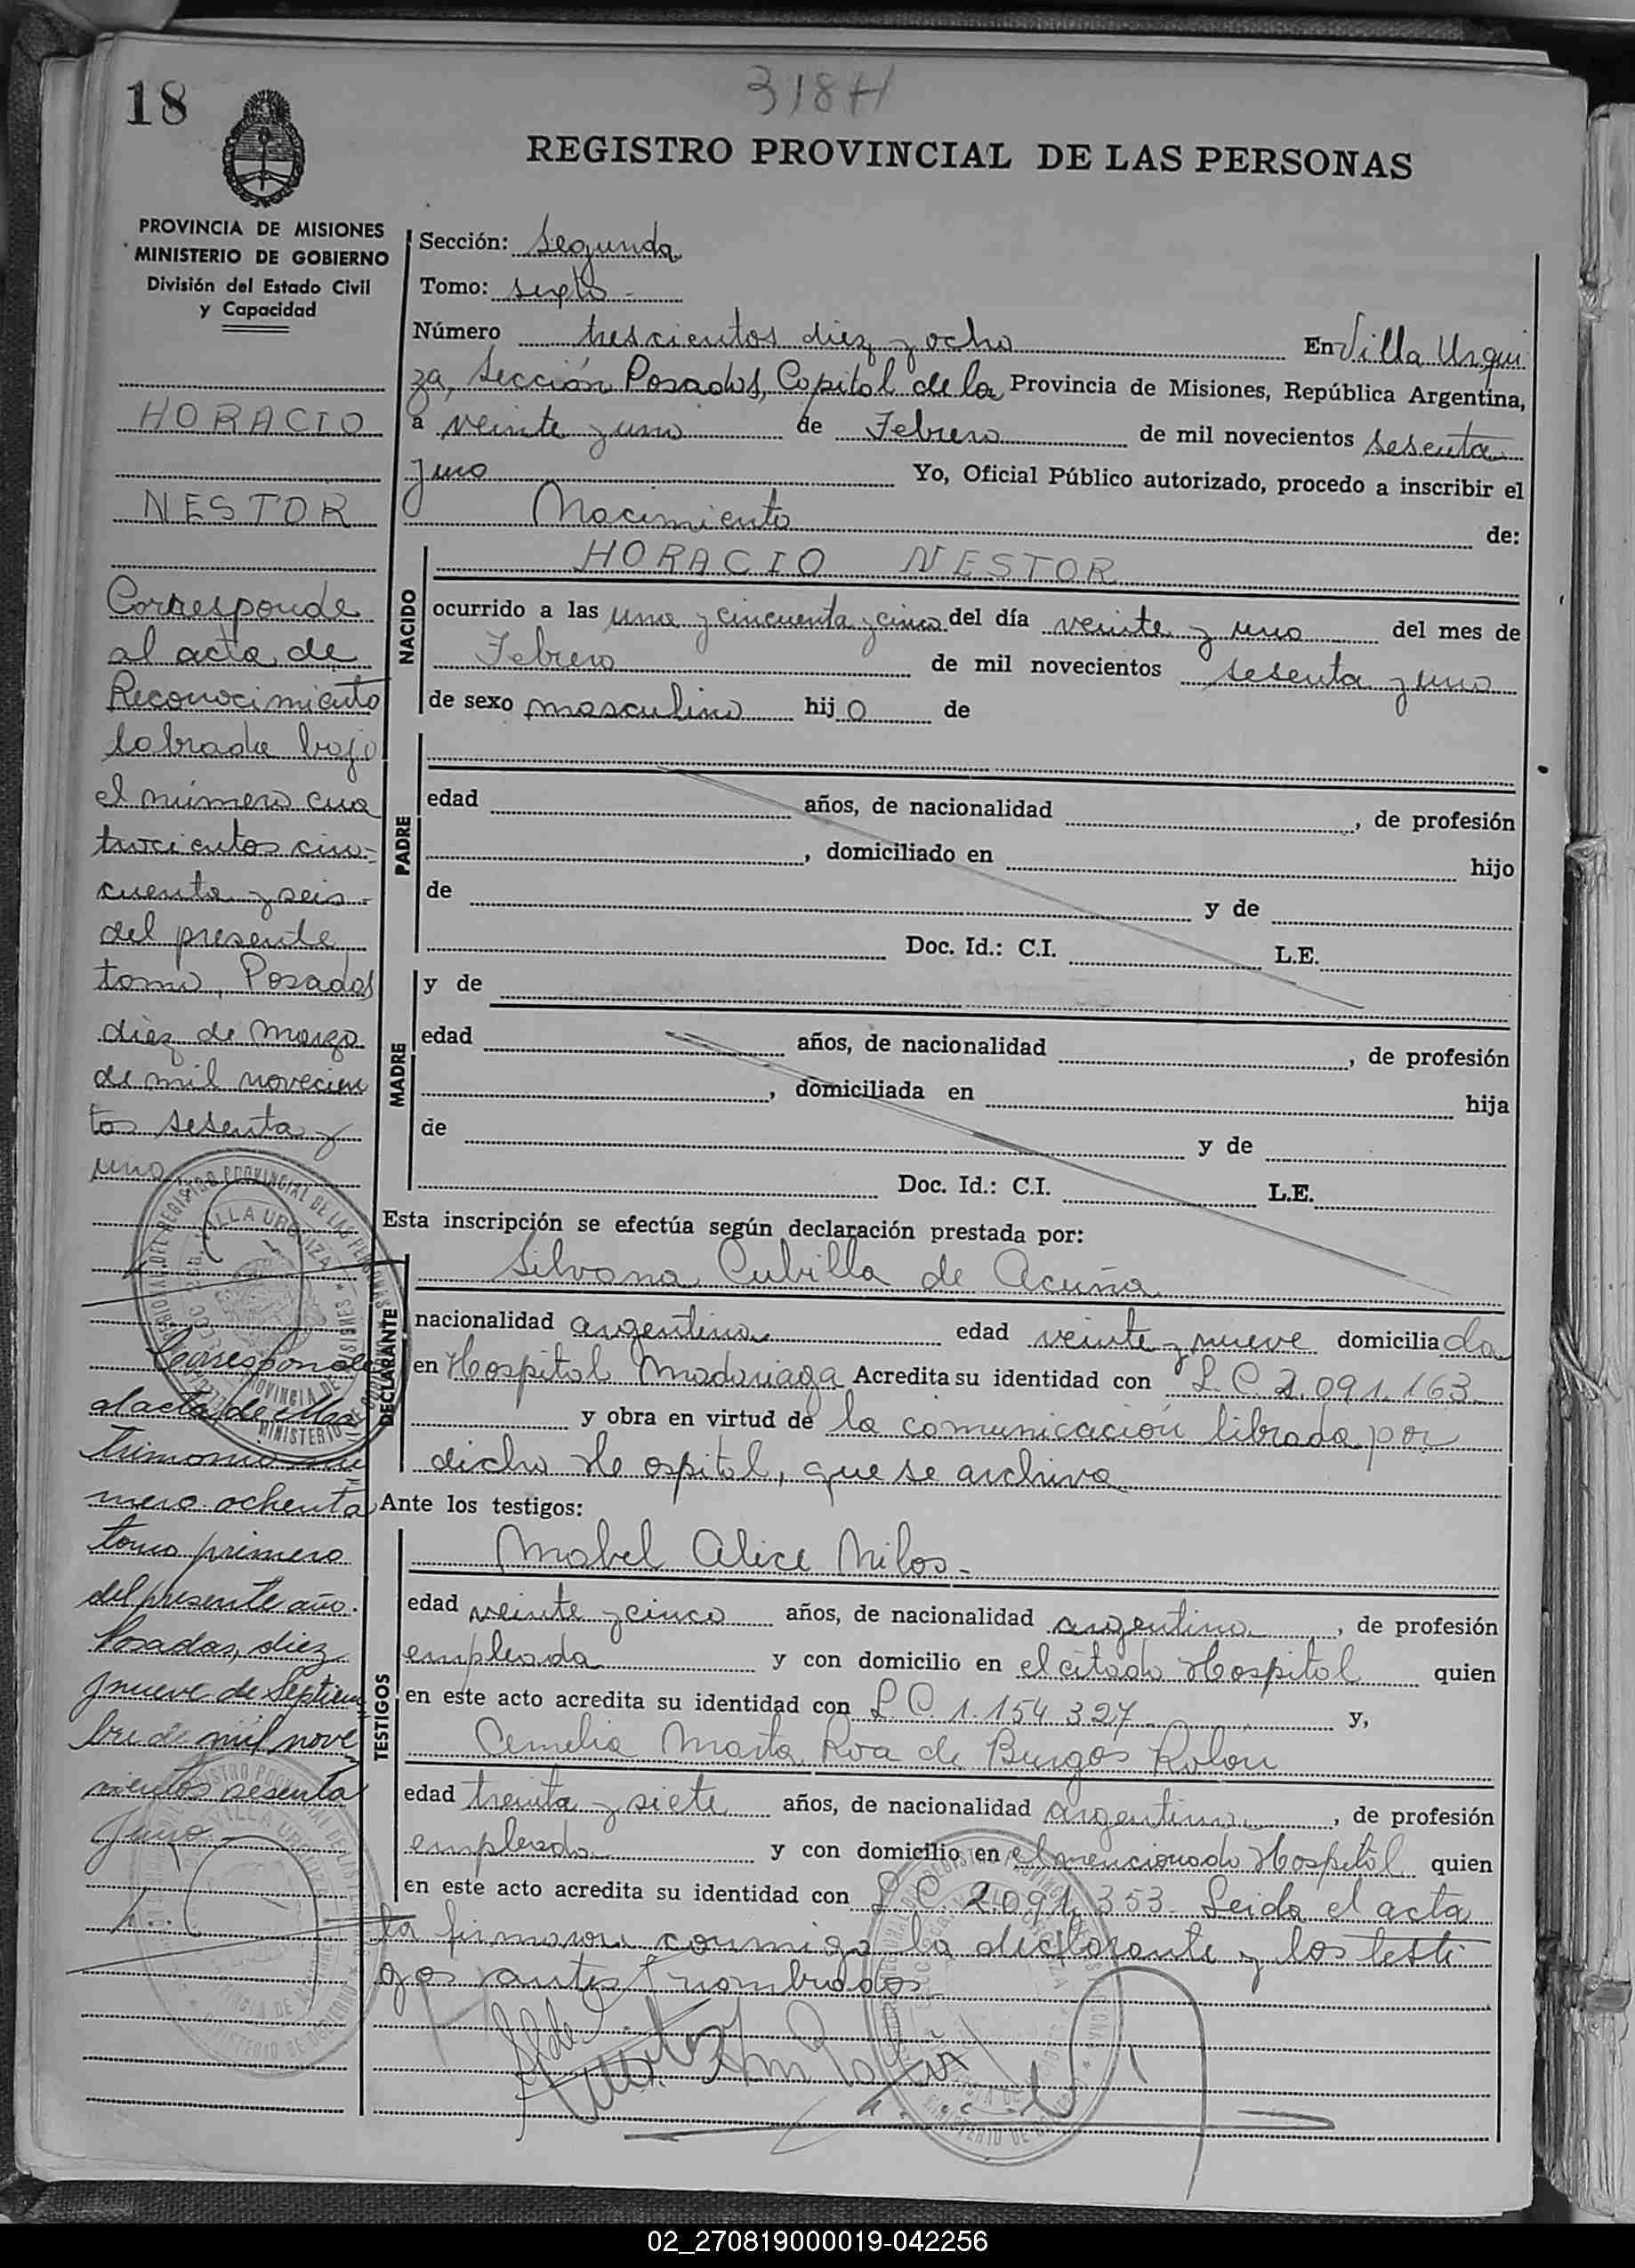 18
318 H
REGISTRO PROVINCIAL DE LAS PERSONAS
PROVINCIA DE MISIONES
MINISTERIO DE GOBIERNO
División del Estado Civil
y Capacidad
HORACIO
NESTOR
Corresponde
al acta de
Reconocimiento
labrada bajo
el número cua
trocientos cin-
cuenta y seis.
del presente
tomo, Posadas
diez de Marzo
de mil novecien
tos sesenta y
uno
Corresponde
al acta de Ma
trimonio nú
mero ochenta
tomo primero
del presente año.
Posadas, diez
y nueve de Septiem
bre de mil nove
cientos sesenta
y uno
Sección: Segunda
Tomo: sexto
Número trescientos diez y ocho En Villa Urqui
za, Sección Posadas, Capital de la Provincia de Misiones, República Argentina,
a veinte y uno de Febrero de mil novecientos sesenta
y uno Yo, Oficial Público autorizado, procedo a inscribir el
Nacimiento de:
NACIDO
HORACIO NESTOR
ocurrido a las una y cincuenta y cinco del día veinte y uno del mes de
Febrero de mil novecientos sesenta y uno
de sexo masculino hijo de
PADRE
edad años, de nacionalidad , de profesión
, domiciliado en hijo
de y de
Doc. Id.: C.I. L.E.
MADRE
y de
edad años, de nacionalidad , de profesión
, domiciliada en hija
de y de
Doc. Id.: C.I. L.E.
Esta inscripción se efectúa según declaración prestada por:
DECLARANTE
Silvana Cubilla de Acuña
nacionalidad argentina edad veinte y nueve domiciliada
en Hospital Madariaga Acredita su identidad con L.C. 2.091.163
y obra en virtud de la comunicación librada por
dicho Hospital, que se archiva
Ante los testigos:
TESTIGOS
Mabel Alice Milos
edad veinte y cinco años, de nacionalidad argentina, de profesión
empleada y con domicilio en el citado Hospital quien
en este acto acredita su identidad con L.C. 1.154.327 y,
Marta Roa de Burgos Rolon
edad treinta y siete años, de nacionalidad argentina, de profesión
empleada y con domicilio en el mencionado Hospital quien
en este acto acredita su identidad con L.C. 2.091.353. Leida el acta
la firmaron conmigo la declarante y los testi
gos antes nombrados
02_270819000019-042256